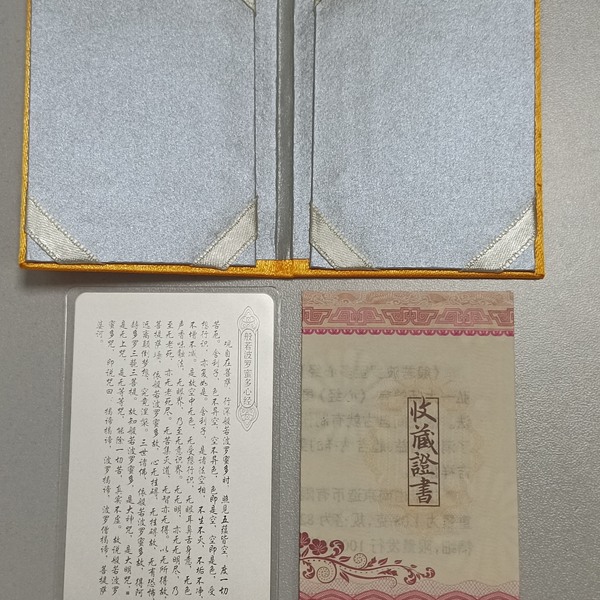 般若波罗蜜多心经
观自在菩萨 行深般若波罗蜜多时 照见五蕴皆空 度一切
苦厄 舍利子 色不异空 空不异色 色即是空 空即是色 受
想行识 亦复如是 舍利子 是诸法空相 不生不灭 不垢不净
不增不减 是故空中无色 无受想行识 无眼耳鼻舌身意 无色
声香味触法 无眼界 乃至无意识界 无无明 亦无无明尽 乃
至无老死 亦无老死尽 无苦集灭道 无智亦无得 以无所得故
菩提萨埵 依般若波罗蜜多故 心无挂碍 无挂碍故 无有恐怖
远离颠倒梦想 究竟涅槃 三世诸佛 依般若波罗蜜多故 得阿
耨多罗三藐三菩提 故知般若波罗蜜多 是大神咒 是大明咒
是无上咒 是无等等咒 能除一切苦 真实不虚 故说般若波罗
蜜多咒 即说咒曰 揭谛揭谛 波罗揭谛 波罗僧揭谛 菩提萨
婆诃
收藏證書